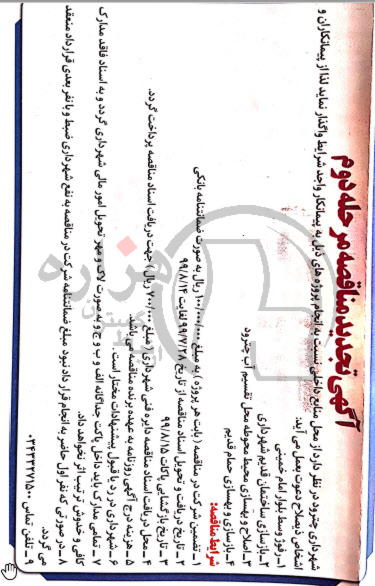 آگهی تجدید مناقصه مرحله دوم
شهرداری چترود در نظر دارد از محل منابع داخلی نسبت به انجام پروژه های ذیل به پیمانکار واجد شرایط واگذار نماید لذا از پیمانکاران و
اشخاص ذیصلاح دعوت بعمل می آید:
۱ـ رفوژ وسط بلوار امام خمینی
۲ـ بازسازی ساختمان قدیم شهرداری
۳ـ اصلاح و بهسازی محیط محوطه محل تقسیم آب چترود
۴ـ بازسازی و بهسازی حمام قدیم
شرایط مناقصه:
۱ ـ تضمین شرکت در مناقصه ( بابت هر پروژه ) به مبلغ ۱۰۰/۰۰۰/۰۰۰ ریال به صورت ضمانتنامه بانکی
۲ ـ تاریخ دریافت و تحویل اسناد مناقصه از تاریخ ۹۹/۷/۲۸ لغایت ۹۹/۸/۱۴
۳ ـ تاریخ بازگشایی پاکات ۹۹/۸/۱۵
۴ ـ محل دریافت اسناد مناقصه دایره فنی شهرداری ( مبلغ ۷۰۰/۰۰۰ ریال ) جهت دریافت اسناد مناقصه پرداخت گردد.
۵ ـ هزینه درج آگهی روزنامه به عهده برنده مناقصه می باشد.
۶ ـ شهرداری در رد یا قبول پیشنهادات مختار است .
۷ ـ تمامی مدارک باید داخل پاکت جداگانه الف و ب و ج و به صورت لاک و مهر تحویل امور مالی شهرداری گردد و به اسناد فاقد مدارک
کافی و خدوش ترتیب اثر نخواهد داد.
۸ ـ در صورتی که نفر اول حاضر به انجام قرار داد نبود مبلغ ضمانتنامه شرکت در مناقصه به نفع شهرداری ضبط و با نفر بعدی قرارداد منعقد
می گردد.
۹ ـ تلفن تماس ۰۳۴۳۳۲۷۱۵۰۰